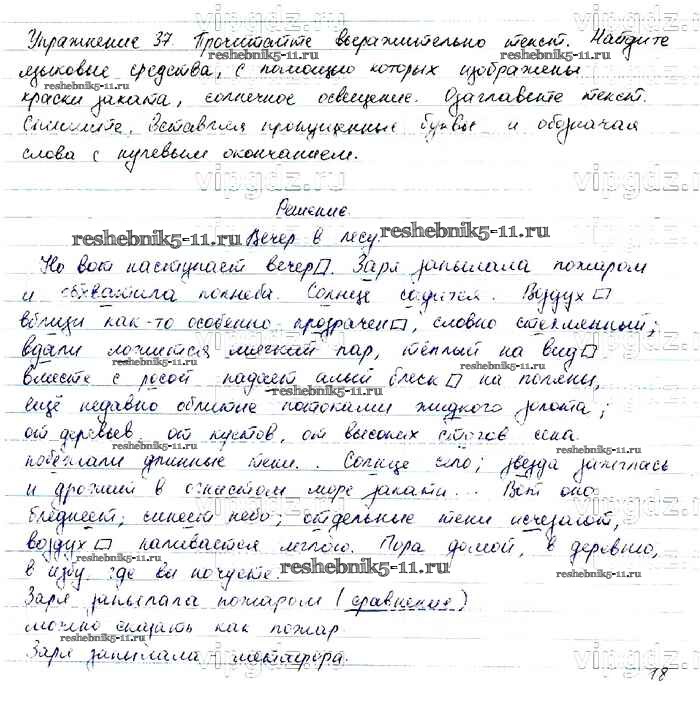 Упражнение 37. Прочитайте выразительно текст. Найдите
языковые средства, с помощью которых изображены
краски заката, солнечное освещение. Озаглавьте текст.
Спишите, вставляя пропущенные буквы и обозначая
слова с нулевым окончанием.
Решение.
Вечер в лесу.
Но вот наступает вечер□. Заря запылала пожаром
и обхватила полнеба. Солнце садится. Воздух□
вблизи как-то особенно прозрачен□, словно стеклянный;
вдали ложится мягкий пар, тёплый на вид□
вместе с росой падает алый блеск□ на поляны,
ещё недавно облитые потоками жидкого золота;
от деревьев, от кустов, от высоких стогов сена
побежали длинные тени... Солнце село; звезда зажглась
и дрожит в огнистом море заката... Вот оно
бледнеет; синеет небо; отдельные тени исчезают,
воздух□ наливается мглою. Пора домой, в деревню,
в избу, где вы ночуете.
Заря запылала пожаром (сравнение)
можно сказать как пожар
Заря запылала - метафора.
18
vipgdz.ru
reshebnik5-11.ru